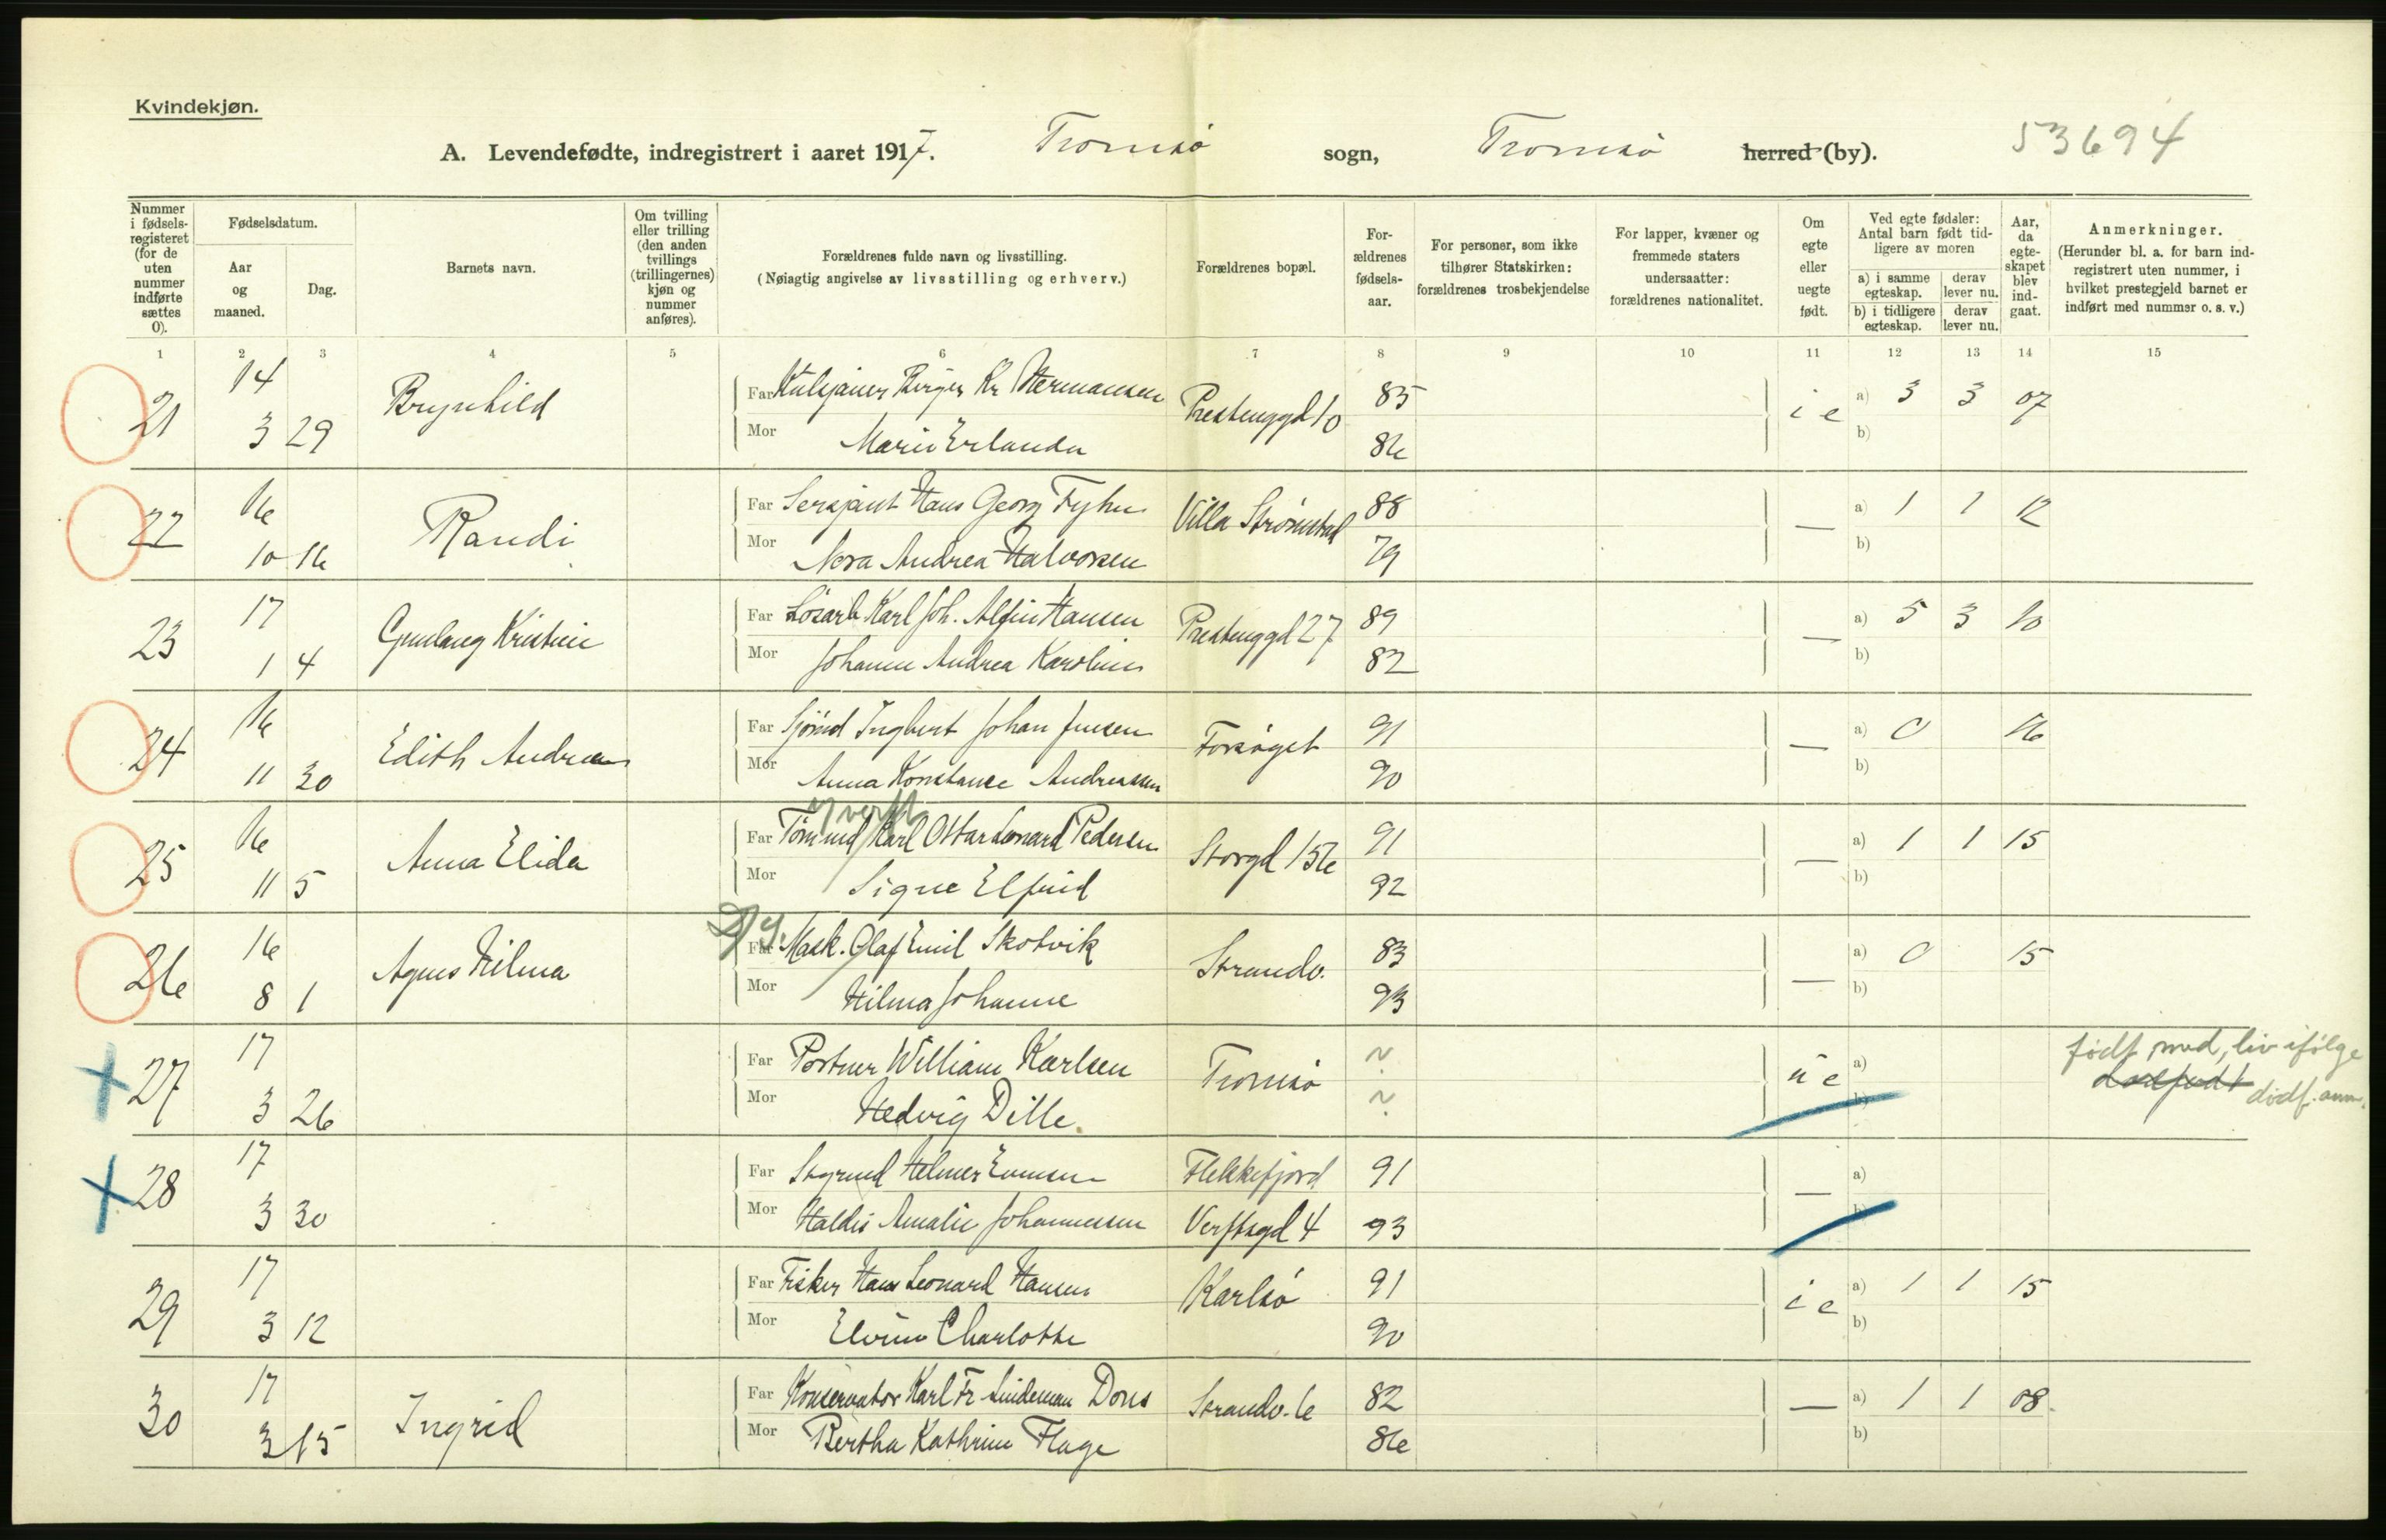 Kvindekjøn.
A. Levendefødte, indregistrert i aaret 1917. Tromsø sogn, Tromsø herred (by). 53694
Nummer i fødselsregisteret (for de uten nummer indførte sættes 0).
Fødselsdatum.
Aar og maaned.
Dag.
Barnets navn.
Om tvilling eller trilling (den anden tvillings (trillingernes) kjøn og nummer anføres).
Forældrenes fulde navn og livsstilling.
(Nøiagtig angivelse av livsstilling og erhverv.)
Forældrenes bopæl.
Forældrenes fødselsaar.
For personer, som ikke tilhører Statskirken: forældrenes trosbekjendelse
For lapper, kvæner og fremmede staters undersaatter: forældrenes nationalitet.
Om egte eller uegte født.
Ved egte fødsler: Antal barn født tidligere av moren
a) i samme egteskap. derav lever nu.
b) i tidligere egteskap. derav lever nu.
Aar, da egteskapet blev indgaat.
Anmerkninger.
(Herunder bl. a. for barn indregistrert uten nummer, i hvilket prestegjeld barnet er indført med nummer o. s. v.)
1 2 3 4 5 6 7 8 9 10 11 12 13 14 15
21 14 3 29 Brynhild Far Birger Kr Hermansen Prestenggd 10 85 i e a) 3 3 07
Mor Marie Erlanda 86 b)
22 16 10 16 Randi Far Sersjant Hans Georg Fyhn Villa Strømstad 88 — a) 1 1 12
Mor Nora Andrea Halvorsen 79 b)
23 17 1 4 Gunlaug Kristine Far Løsarb Karl Joh. Alfin Hansen Prestenggd 27 89 — a) 5 3 10
Mor Johanne Andrea Karoline 82 b)
24 16 11 30 Edith Andrea Far Sjømd Ingbert Johan Jensen Forsøget 91 — a) 0 16
Mor Anna Konstanse Andreassen 90 b)
yverft
25 16 11 5 Anna Elida Far Tømmd Karl Ottar Leonard Pedersen Storgd 156 91 — a) 1 1 15
Mor Signe Elfrid 92 b)
26 16 8 1 Agnes Hilma Far Mask. Olaf Emil Skotvik Strandv. 83 — a) 0 15
Mor Hilma Johanne 93 b)
27 17 3 26 Far Portner William Karlsen Tromsø ~ u e a) født med liv ifølge
Mor Hedvig Dille ~ b) dødfødt dødf. anm.
28 17 3 30 Far Helmer Flekkefjord 91 — a)
Mor Haldis Amalie Johannessen Verftsgd 4 93 b)
29 17 3 12 Far Fisker Hans Leonard Hansen Karlsø 91 i e a) 1 1 15
Mor Charlotte 90 b)
30 17 3 15 Ingrid Far Konservator Karl Fr Lindeman Dons Strandv. 6 82 — a) 1 1 08
Mor Bertha Kathrine Flage 86 b)